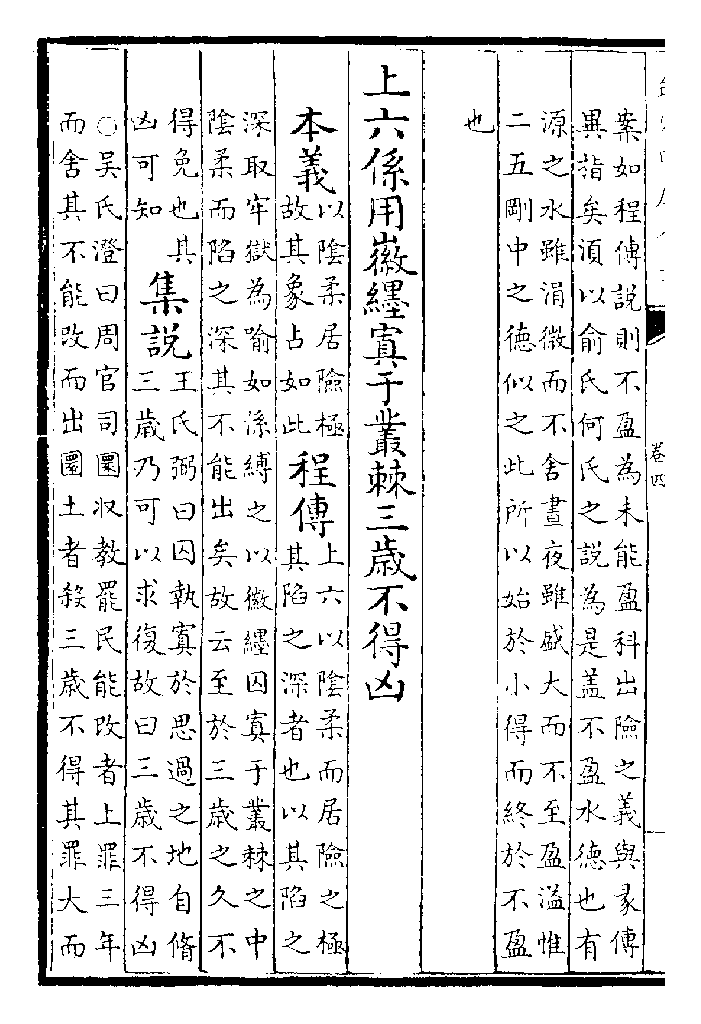 案如程傳說則不盈為未能盈科出險之義與彖傳
異指矣須以俞氏何氏之說為是蓋不盈水德也有
源之水雖涓微而不舍晝夜雖盛大而不至盈溢惟
二五剛中之德似之此所以始於小得而終於不盈
也
上六係用徽纆寘于叢棘三歲不得凶
本義
以陰柔居險極
故其象占如此
程傳
上六以陰柔而居險之極
其陷之深者也以其陷之
深取牢獄為喻如係縛之以徽纆囚寘于叢棘之中
陰柔而陷之深其不能出矣故云至於三歲之久不
得免也其
凶可知
集說
王氏弼曰囚執寘於思過之地自脩
三歲乃可以求復故曰三歲不得凶
○吳氏澄曰周官司圜收教罷民能改者上罪三年
而舍其不能改而出圜土者殺三歲不得其罪大而
卷四